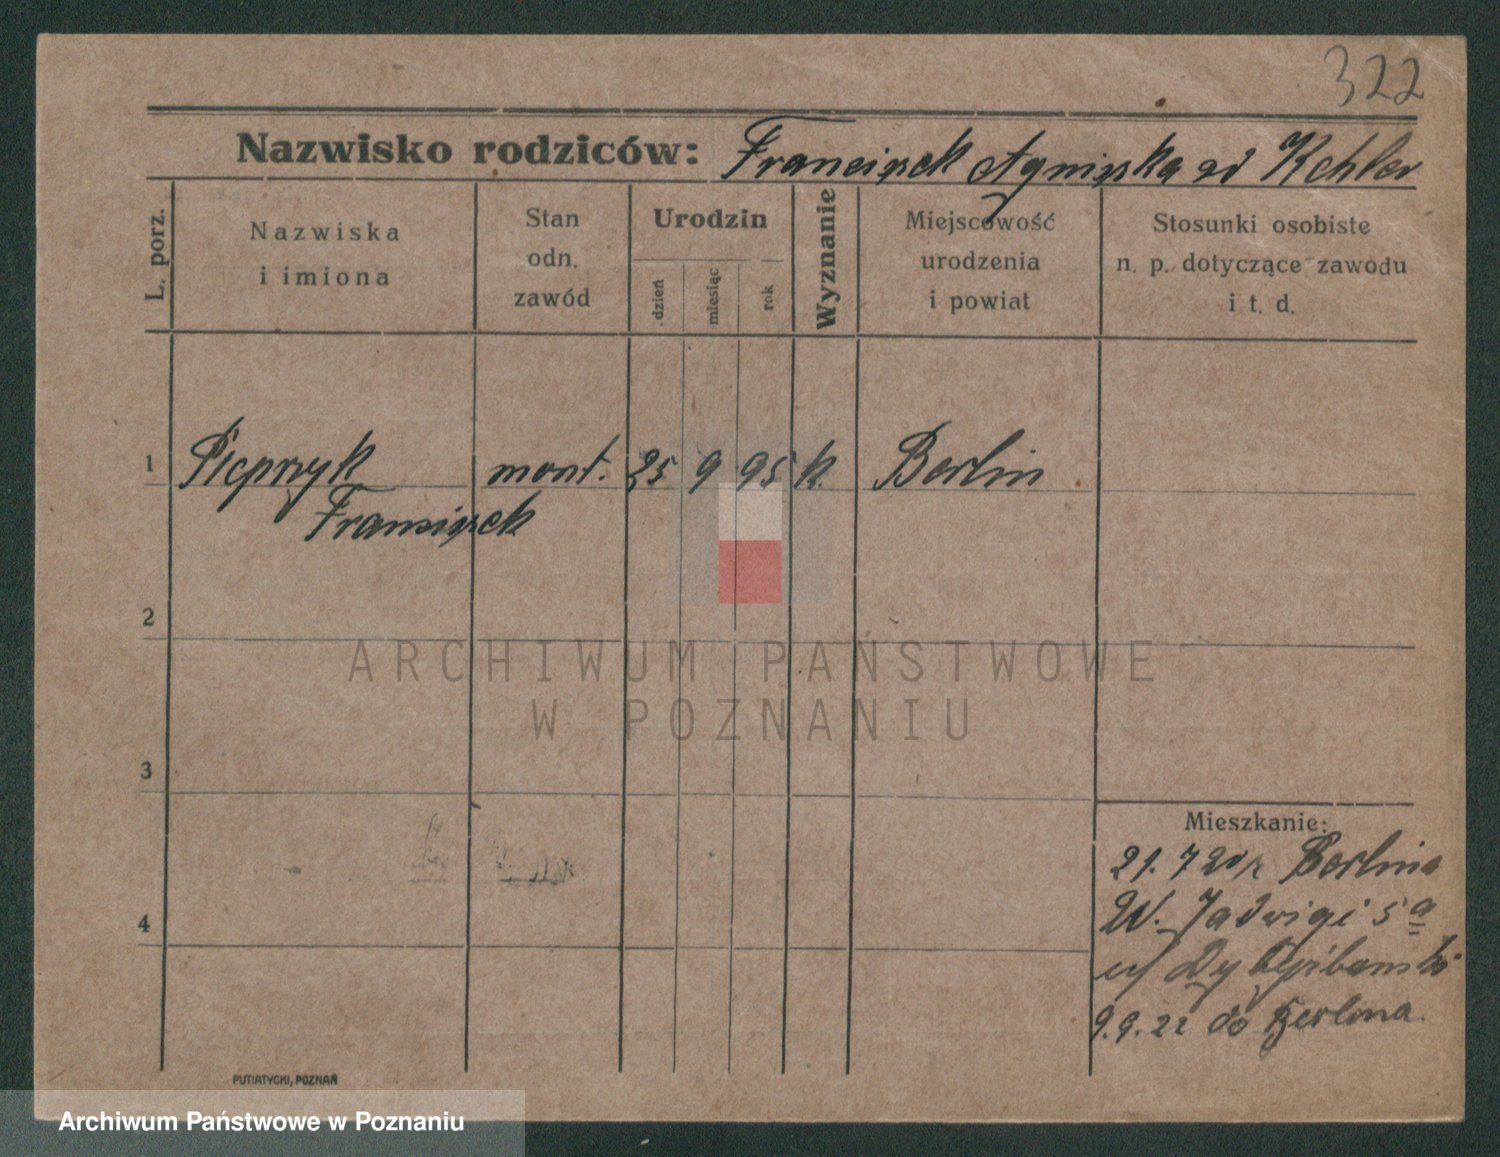 322
Nazwisko rodziców: Franciszek Agnieszka zd Kehler
L. porz.
Nazwiska
i imiona
Stan
odn.
zawód
Urodzin
dzień
miesiąc
rok
Wyznanie
Miejscowość
urodzenia
i powiat
Stosunki osobiste
n. p. dotyczące zawodu
i t. d.
1 Pieprzyk mont. 25 9 95 k. Berlin
Franciszek
2
ARCHIWUM PAŃSTWOWE
W POZNANIU
3
Mieszkanie:
21. 7 20 z Berlina
W. Jadwigi 5 a
4
u/
9.9.22 do Berlina.
PUTIATYCKI, POZNAŃ
Archiwum Państwowe w Poznaniu